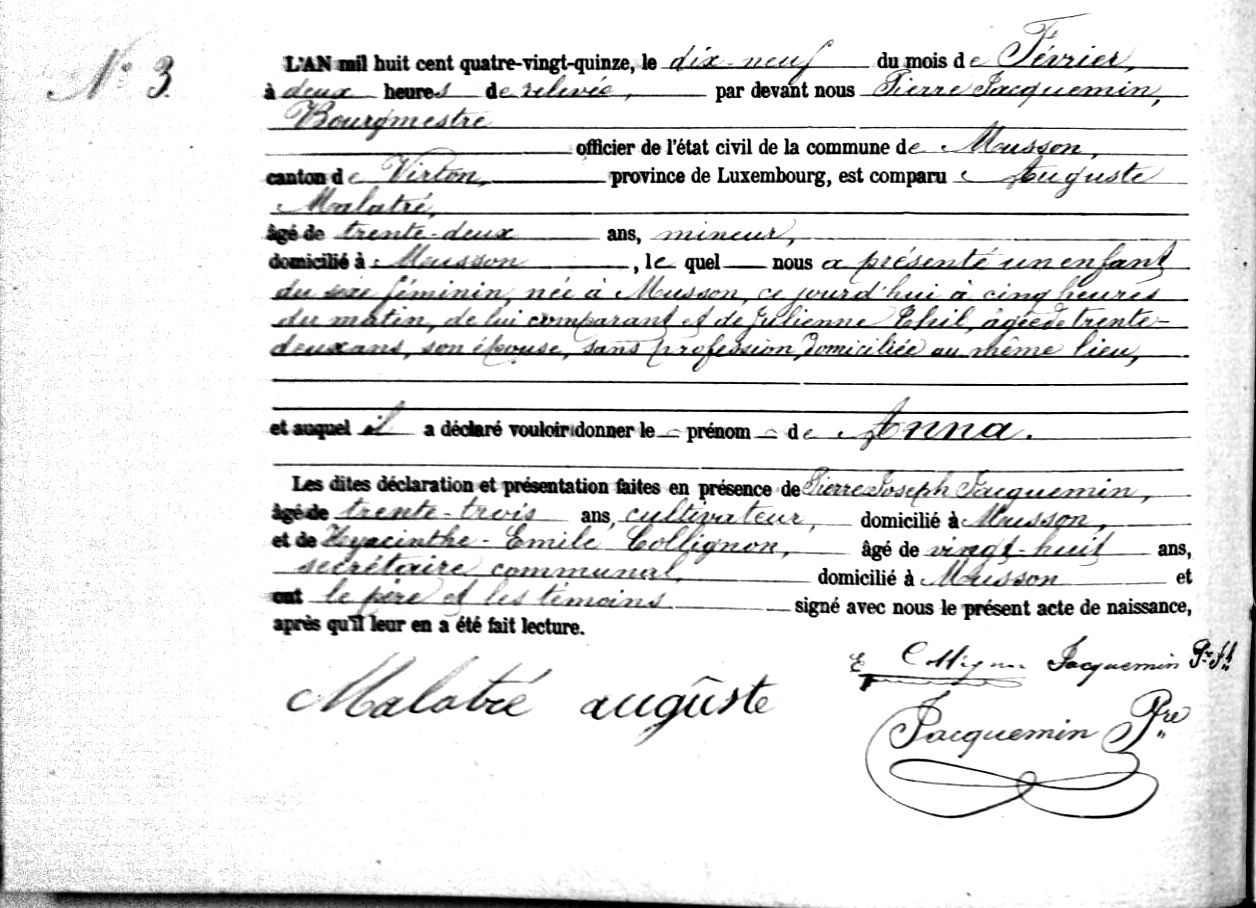 N° 3.
L'AN mil huit cent quatre-vingt-quinze, le dix-neuf du mois de Février,
à deux heures de relevée, par devant nous Pierre Jacquemin,
Bourgmestre
officier de l'état civil de la commune de Musson,
canton de Virton, province de Luxembourg, est comparu Auguste
Malatré,
âgé de trente-deux ans, mineur,
domicilié à Musson, le quel nous a présenté un enfant
du sexe féminin, née à Musson, ce jourd'hui à cinq heures
du matin, de lui comparant et de Julienne Thil, âgée de trente-
deux ans, son épouse, sans profession, domiciliée au même lieu,
et auquel il a déclaré vouloir donner le prénom de Anna.
Les dites déclaration et présentation faites en présence de Pierre Joseph Jacquemin,
âgé de trente-trois ans, cultivateur, domicilié à Musson,
et de Hyacinthe-Emile Collignon, âgé de vingt-huit ans,
secrétaire communal, domicilié à Musson et
ont le père et les témoins signé avec nous le présent acte de naissance,
après qu'il leur en a été fait lecture.
E Collignon Jacquemin Pre Jh
Malatré auguste
Jacquemin Pre